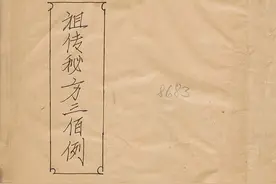 祖传秘方三佰例
8683